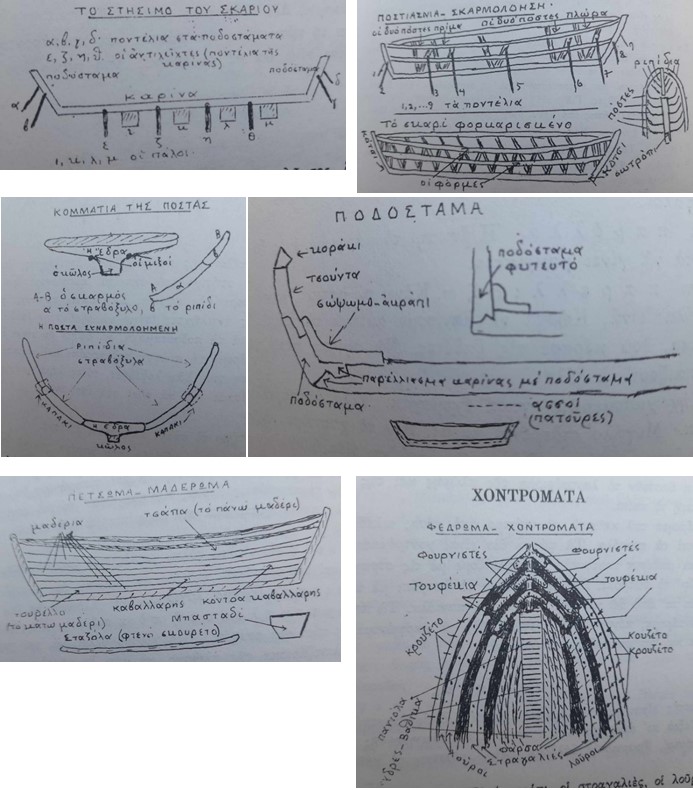 ΤΟ ΣΤΗΣΙΜΟ ΤΟΥ ΣΚΑΡΙΟΥ
α, β, γ, δ· ποντέλια στα ποδοστάματα
ε, ζ, η, θ. οἱ ἀντιλεῖχτες (ποντέλια τῆς
καρίνας)
ποδόσταμα
ποδόσταμα
καρίνα
α
β
γ
δ
ε
ι
ζ
κ
η
λ
θ
μ
ι, κ, λ, μ οἱ πάλοι.
ΠΟΣΤΙΑΣΜΑ - ΣΚΑΡΜΟΛΟΗΣΗ·
οἱ δυό πόστες πρίμα
οἱ δυό πόστες πλώρα
1
2
3
4
5
6
7
8
9
1, 2, ...9 τά ποντέλια
ριπίδια
πόστες
σωτρόπι
Τό σκαρί φορμαρισμένο
κότσι
κότσι
οἱ φόρμες
ΚΟΜΜΑΤΙΑ ΤΗΣ ΠΟΣΤΑΣ
ἡ ἕδρα
ὁ κῶλος
οἱ μεξοί
A
α
β
B
Α-Β ὁ σκαρμός
α τό στραβόξυλο, β τό ριπίδι
Η ΠΟΣΤΑ ΣΥΝΑΡΜΟΛΟΗΜΕΝΗ
Ριπίδια
στραβόξυλα
καπάκι
καπάκι
ἡ ἕδρα
κῶλος
ΠΟΔΟΣΤΑΜΑ
κοράκι
τσούντα
σώψωμο-ἀκράπι
ποδόσταμα
φυτευτό
παρέλλιασμα καρίνας μέ ποδόσταμα
ποδόσταμα
ασσοί
(πατοῦρες)
ΠΕΤΣΩΜΑ - ΜΑΔΕΡΩΜΑ
μαδέρια
τσάπα (τό πάνω μαδέρι)
τουρέλλο
(τό κάτω μαδέρι)
καβαλλάρης
κόντρα καβαλλάρης
Μπασταδί
Σταζόλα (φτενό σκουρέτο)
ΧΟΝΤΡΟΜΑΤΑ
ΦΕΔΡΩΜΑ - ΧΟΝΤΡΟΜΑΤΑ
Φουρνιστές
Φουρνιστές
Τουφέκια
τουφέκια
κρουζέτο
κουζέτο
κρουζέτο
πανιόλα
ἕδρες - Βαθικά
λοῦροι
φάρσα
Στραγαλιές
λοῦροι
οἱ στραγαλιές, οἱ λοῦ